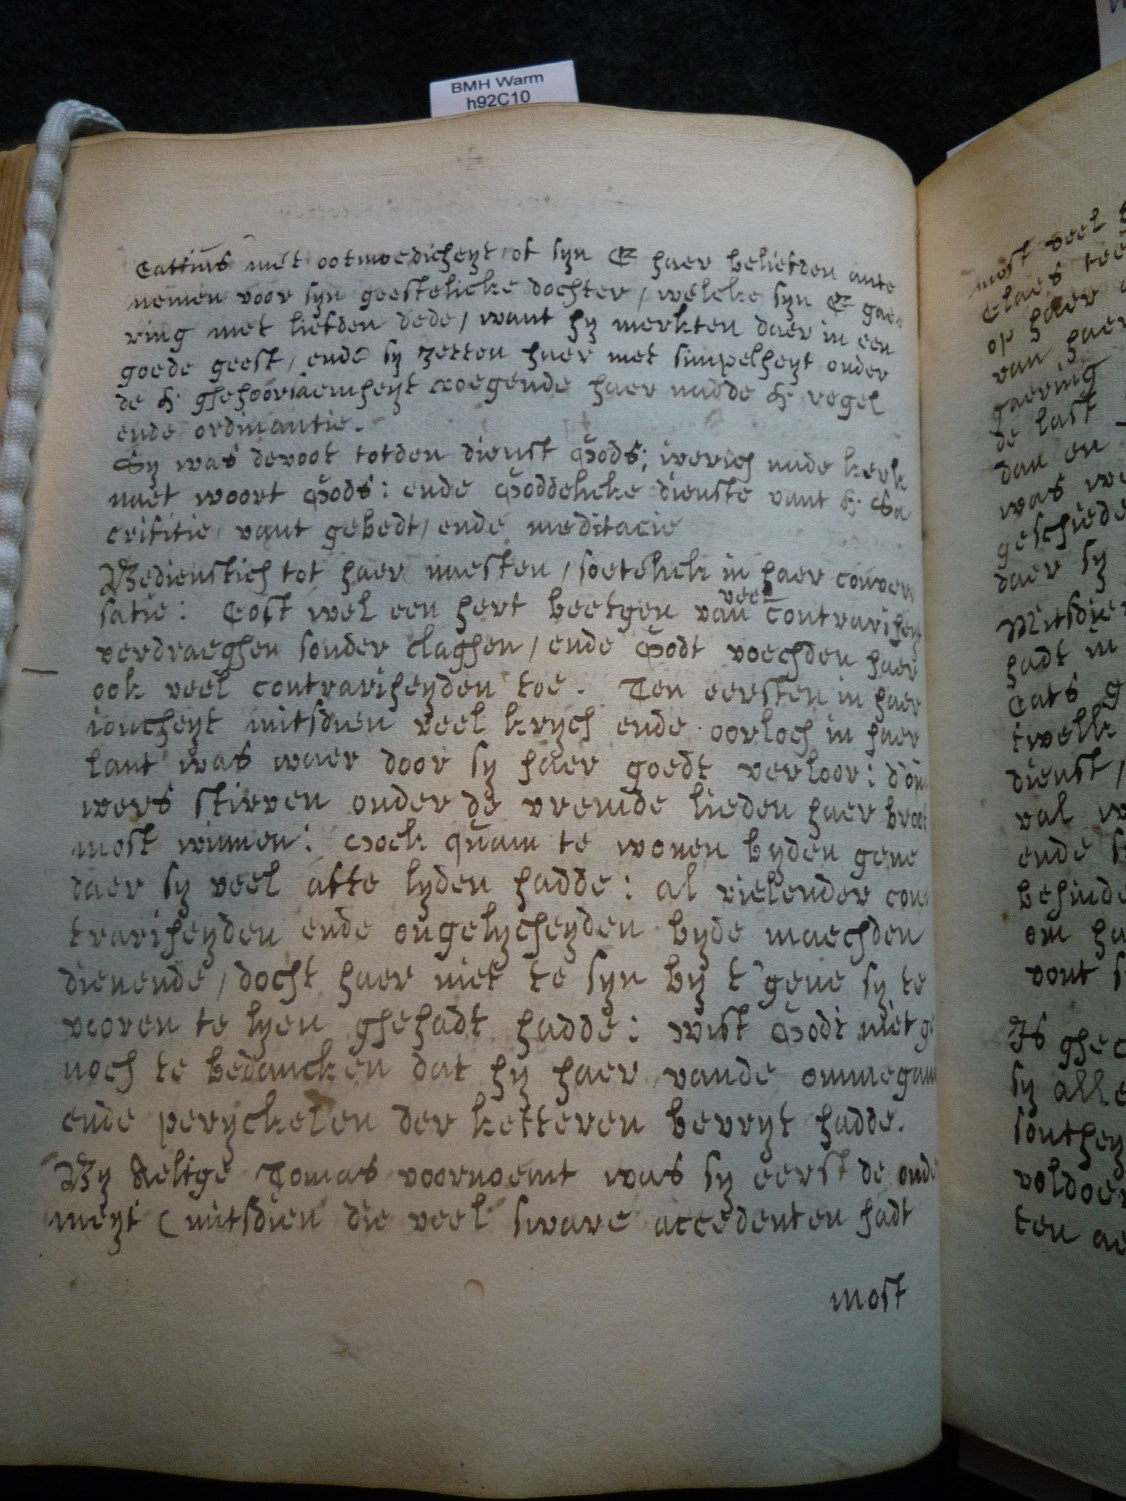 BMH Warm
h92C10
Cattius met ootmoedicheyt of syn E haer beliefden ante
nemen voor syn geestelicke dochter / welcke syn E gae
ring met liefden dede / want hy merckten daer in een
goede geest / ende sy zetten haer met simpelheyt onder
de H ghehoorsaemheyt voegende haer nadde H regel
ende ordinantie.
Sy was devoot totden dienst Gods; iverich nade kerk
naet woort Gods: ende Goddelicke dienste vant H Sa
crifitie vant gebedt / ende meditacie
Gedienstich tot haer naesten / soetelick in haer conver
satie: Cost wel een hert beetgen van veel contrarihey
verdraeghen sonder claghen / ende Godt voechden haer
ook veel contrariheyden toe. Ten eersten in haer
ioncheyt mitsdien veel krych ende oorloch in haer
lant was waer door sy haer goedt verloor: d'ou
wers stierven onder de vremde lieden haer broot
most winnen: Oock quam te wonen byden gene
daer sy veel af te lyden hadde: al vielender con
trariheyden ende ongelycheyden byde maechden
dienende / docht haer niet te syn by t'gene sy te
vooren te lyen ghehadt hadde: wist Godt niet ge
noch te bedancken dat hy haer vande ommegan
ende peryckelen der ketteren bevryt hadde.
By Aeltge Tomas voornoemt was sy eerst de onde
meyt (mitsdien die veel sware accedenten hadt
most
most veel
Claes
op haer
van haer
gaering
de last
dan en
was
geschiede
daer sy
Mitsdie
hadt in
Cats
twelk
dienst /
val
ende
behinde
om
vont
Is
sy alle
southey
voldoen
ten